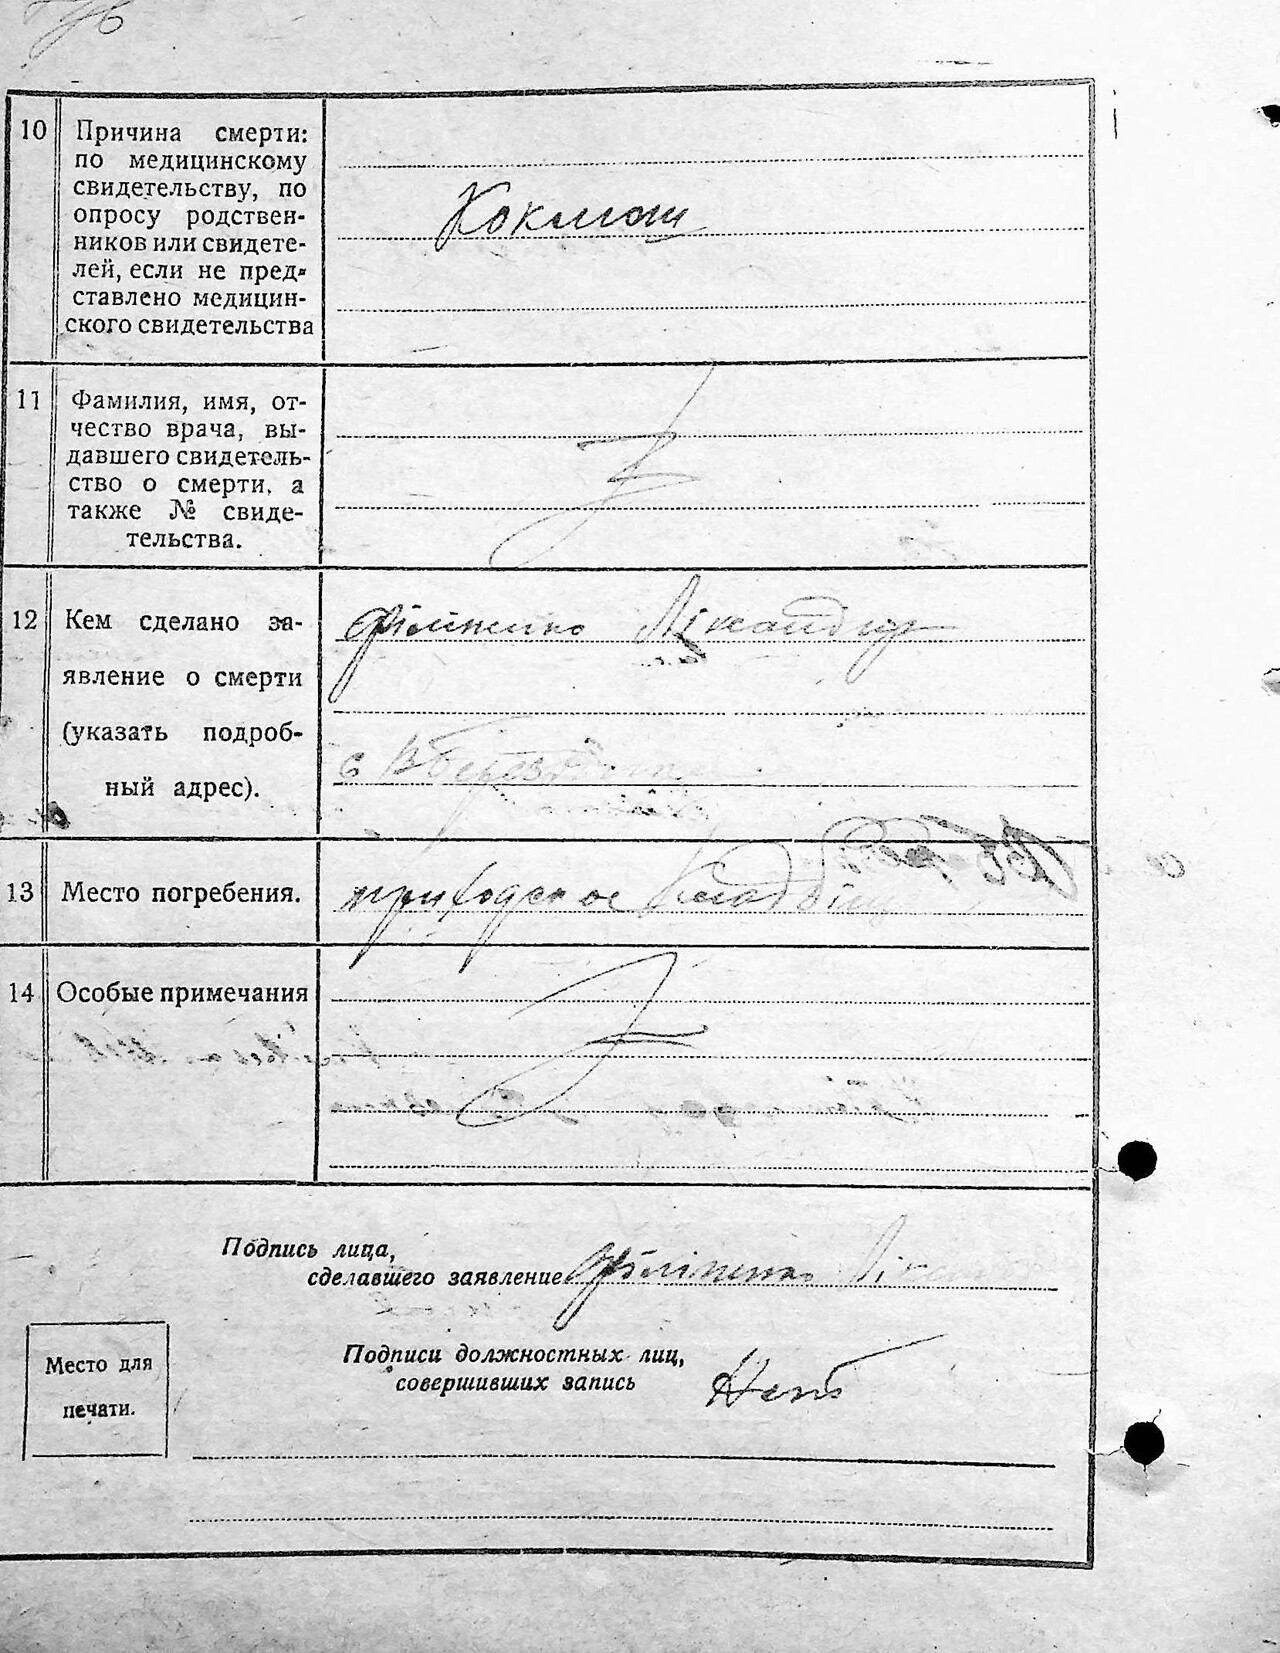 10 Причина смерти:
по медицинскому
свидетельству, по
опросу родствен-
ников или свидете-
лей, если не пред-
ставлено медицин-
ского свидетельства
Коклюш
11 Фамилия, имя, от-
чество врача, вы-
давшего свидетель-
ство о смерти, а
также № свиде-
тельства.
12 Кем сделано за-
явление о смерти
(указать подроб-
ный адрес).
Філіпенко Лікандр
с
13 Место погребения.
приходское
14 Особые примечания
Подпись лица,
сделавшего заявление Філіпенко
Подписи должностных лиц,
совершивших запись
Место для
печати.